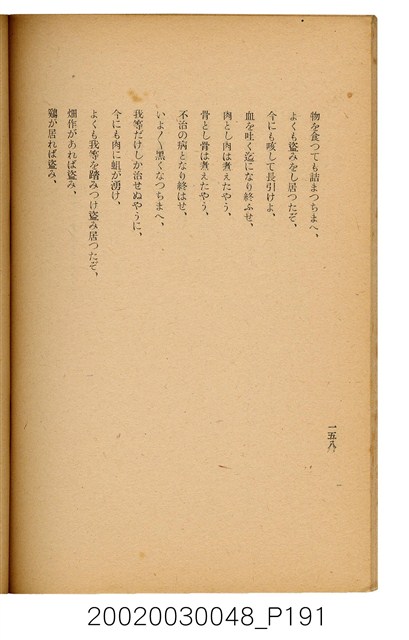 物を食つても詰まつちまへ、
よくも盜みをし居つたぞ、
今にも咳して長引けよ、
血を吐く迄になり終ふせ、
肉とし肉は煮えたやう、
骨とし骨は煮えたやう、
不治の病となり終はせ、
いよ〳〵黒くなつちまへ、
我等だけしか治せぬやうに、
今にも肉に蛆が湧け、
よくも我等を踏みつけ盜み居つたぞ、
畑作があれば盜み、
鷄が居れば盜み、
一五八
20020030048_P191